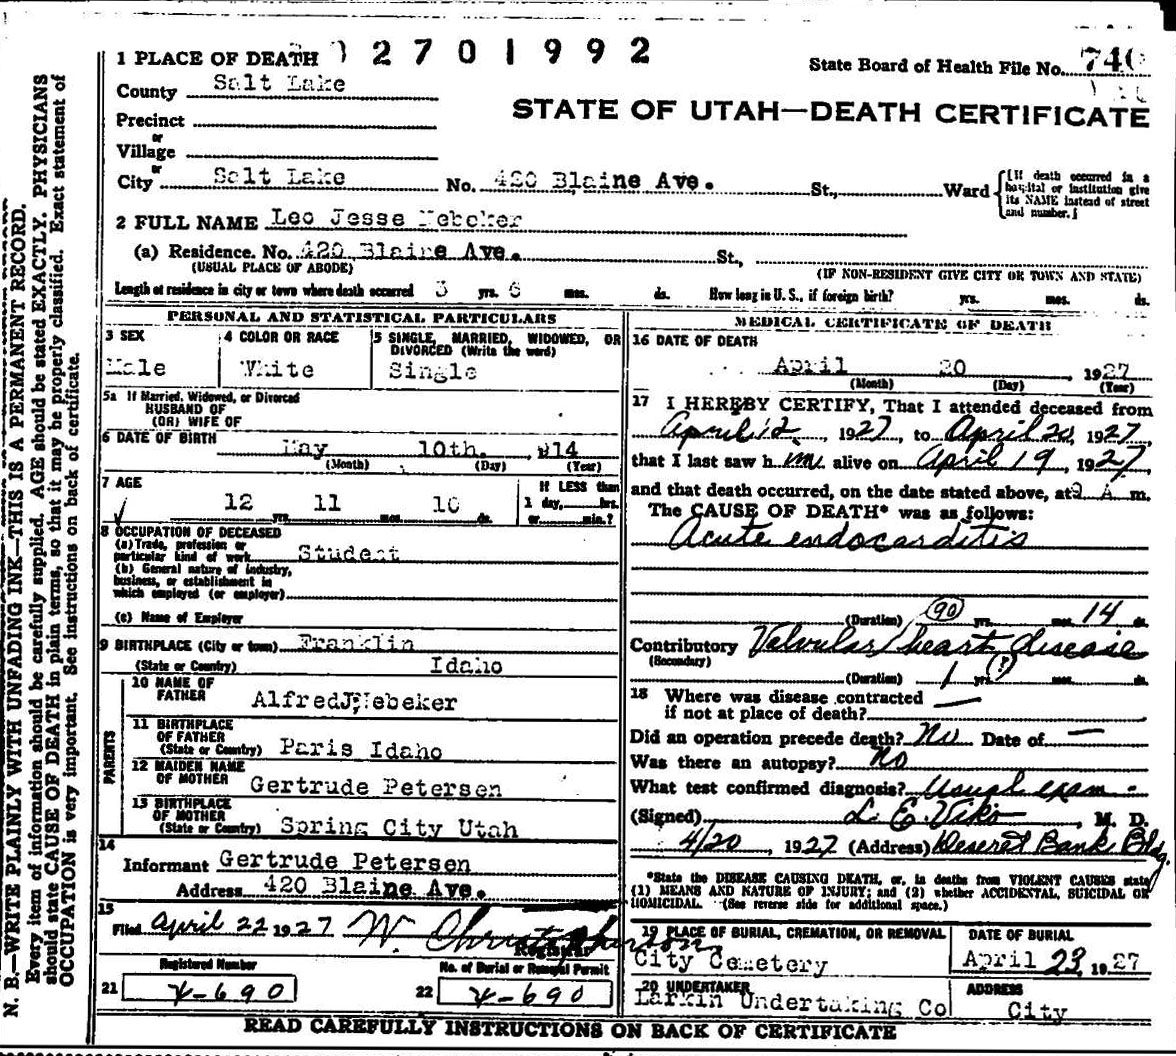 1 PLACE OF DEATH 2 7 0 1 9 9 2
State Board of Health File No. 740
County Salt Lake
STATE OF UTAH—DEATH CERTIFICATE
Precinct
or
Village
or
City Salt Lake No. 420 Blaine Ave. St., Ward
[If death occurred in a hospital or institution give its NAME instead of street and number.]
2 FULL NAME Leo Jesse Nebeker
(a) Residence. No. 420 Blaine Ave. St.,
(USUAL PLACE OF ABODE) (IF NON-RESIDENT GIVE CITY OR TOWN AND STATE)
Length of residence in city or town where death occurred 3 yrs. 6 mos. ds. How long in U. S., if foreign birth? yrs. mos. ds.
PERSONAL AND STATISTICAL PARTICULARS
3 SEX 4 COLOR OR RACE 5 SINGLE, MARRIED, WIDOWED, OR
DIVORCED (Write the word)
Male White Single
5a If Married, Widowed, or Divorced
HUSBAND OF
(OR) WIFE OF
6 DATE OF BIRTH May 10th. 914
(Month) (Day) (Year)
7 AGE If LESS than
12 yrs. 11 mos. 10 ds. 1 day, hrs.
or min.?
8 OCCUPATION OF DECEASED
(a) Trade, profession or
particular kind of work Student
(b) General nature of industry,
business, or establishment in
which employed (or employer)
(c) Name of Employer
9 BIRTHPLACE (City or town) Franklin
(State or Country) Idaho
PARENTS
10 NAME OF
FATHER Alfred J. Nebeker
11 BIRTHPLACE
OF FATHER
(State or Country) Paris Idaho
12 MAIDEN NAME
OF MOTHER Gertrude Petersen
13 BIRTHPLACE
OF MOTHER
(State or Country) Spring City Utah
14
Informant Gertrude Petersen
Address 420 Blaine Ave.
15
Filed April 22 1927 W. Christopherson
Registrar
Registered Number No. of Burial or Removal Permit
21 X-690 22 X-690
MEDICAL CERTIFICATE OF DEATH
16 DATE OF DEATH
April 20 1927
(Month) (Day) (Year)
17 I HEREBY CERTIFY, That I attended deceased from
April 12, 1927, to April 20, 1927,
that I last saw h im alive on April 19, 1927,
and that death occurred, on the date stated above, at 2 A m.
The CAUSE OF DEATH* was as follows:
Acute endocarditis
(90)
(Duration) yrs. mos. 14 ds.
Contributory Valvular heart disease
(Secondary)
(Duration) 1 yrs. (?) mos. ds.
18 Where was disease contracted
if not at place of death? —
Did an operation precede death? No Date of —
Was there an autopsy? No
What test confirmed diagnosis? Usual exam -
(Signed) L. E. Viko, M. D.
4/20, 1927 (Address) Deseret Bank Bldg.
*State the DISEASE CAUSING DEATH, or, in deaths from VIOLENT CAUSES state
(1) MEANS AND NATURE OF INJURY; and (2) whether ACCIDENTAL, SUICIDAL OR
HOMICIDAL. (See reverse side for additional space.)
19 PLACE OF BURIAL, CREMATION, OR REMOVAL DATE OF BURIAL
City Cemetery April 23, 1927
20 UNDERTAKER ADDRESS
Larkin Undertaking Co City
READ CAREFULLY INSTRUCTIONS ON BACK OF CERTIFICATE
N. B.—WRITE PLAINLY WITH UNFADING INK—THIS IS A PERMANENT RECORD.
Every item of information should be carefully supplied. AGE should be stated EXACTLY. PHYSICIANS
should state CAUSE OF DEATH in plain terms, so that it may be properly classified. Exact statement of
OCCUPATION is very important. See instructions on back of certificate.